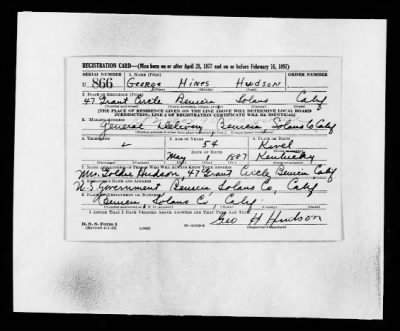 REGISTRATION CARD—(Men born on or after April 28, 1877 and on or before February 16, 1897)
SERIAL NUMBER 1. NAME (Print) ORDER NUMBER
U 866 GEORGE HINES HUDSON
(First) (Middle) (Last)
2. PLACE OF RESIDENCE (Print)
47 Grant Circle Benicia Solano Calif
[THE PLACE OF RESIDENCE GIVEN ON THE LINE ABOVE WILL DETERMINE LOCAL BOARD
JURISDICTION; LINE 2 OF REGISTRATION CERTIFICATE WILL BE IDENTICAL]
3. MAILING ADDRESS
General Delivery Benicia Solano Co Calif
4. TELEPHONE 5. AGE IN YEARS 6. PLACE OF BIRTH
54
DATE OF BIRTH
May 1 1887 Kentucky
7. NAME AND ADDRESS OF PERSON WHO WILL ALWAYS KNOW YOUR ADDRESS
Mrs. Goldie Hudson, 47 Grant Circle Benicia Calif
8. EMPLOYER'S NAME AND ADDRESS
U.S Government Benicia Solano Co, Calif
9. PLACE OF EMPLOYMENT OR BUSINESS
Benicia Solano Co Calif.
I AFFIRM THAT I HAVE VERIFIED ABOVE ANSWERS AND THAT THEY ARE TRUE.
Geo H Hudson
D. S. S. Form 1